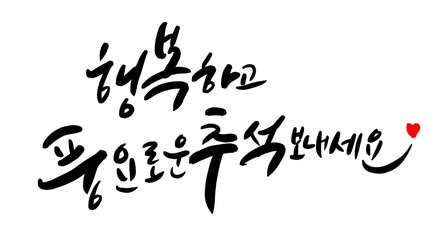 행복하고
풍요로운 추석 보내세요